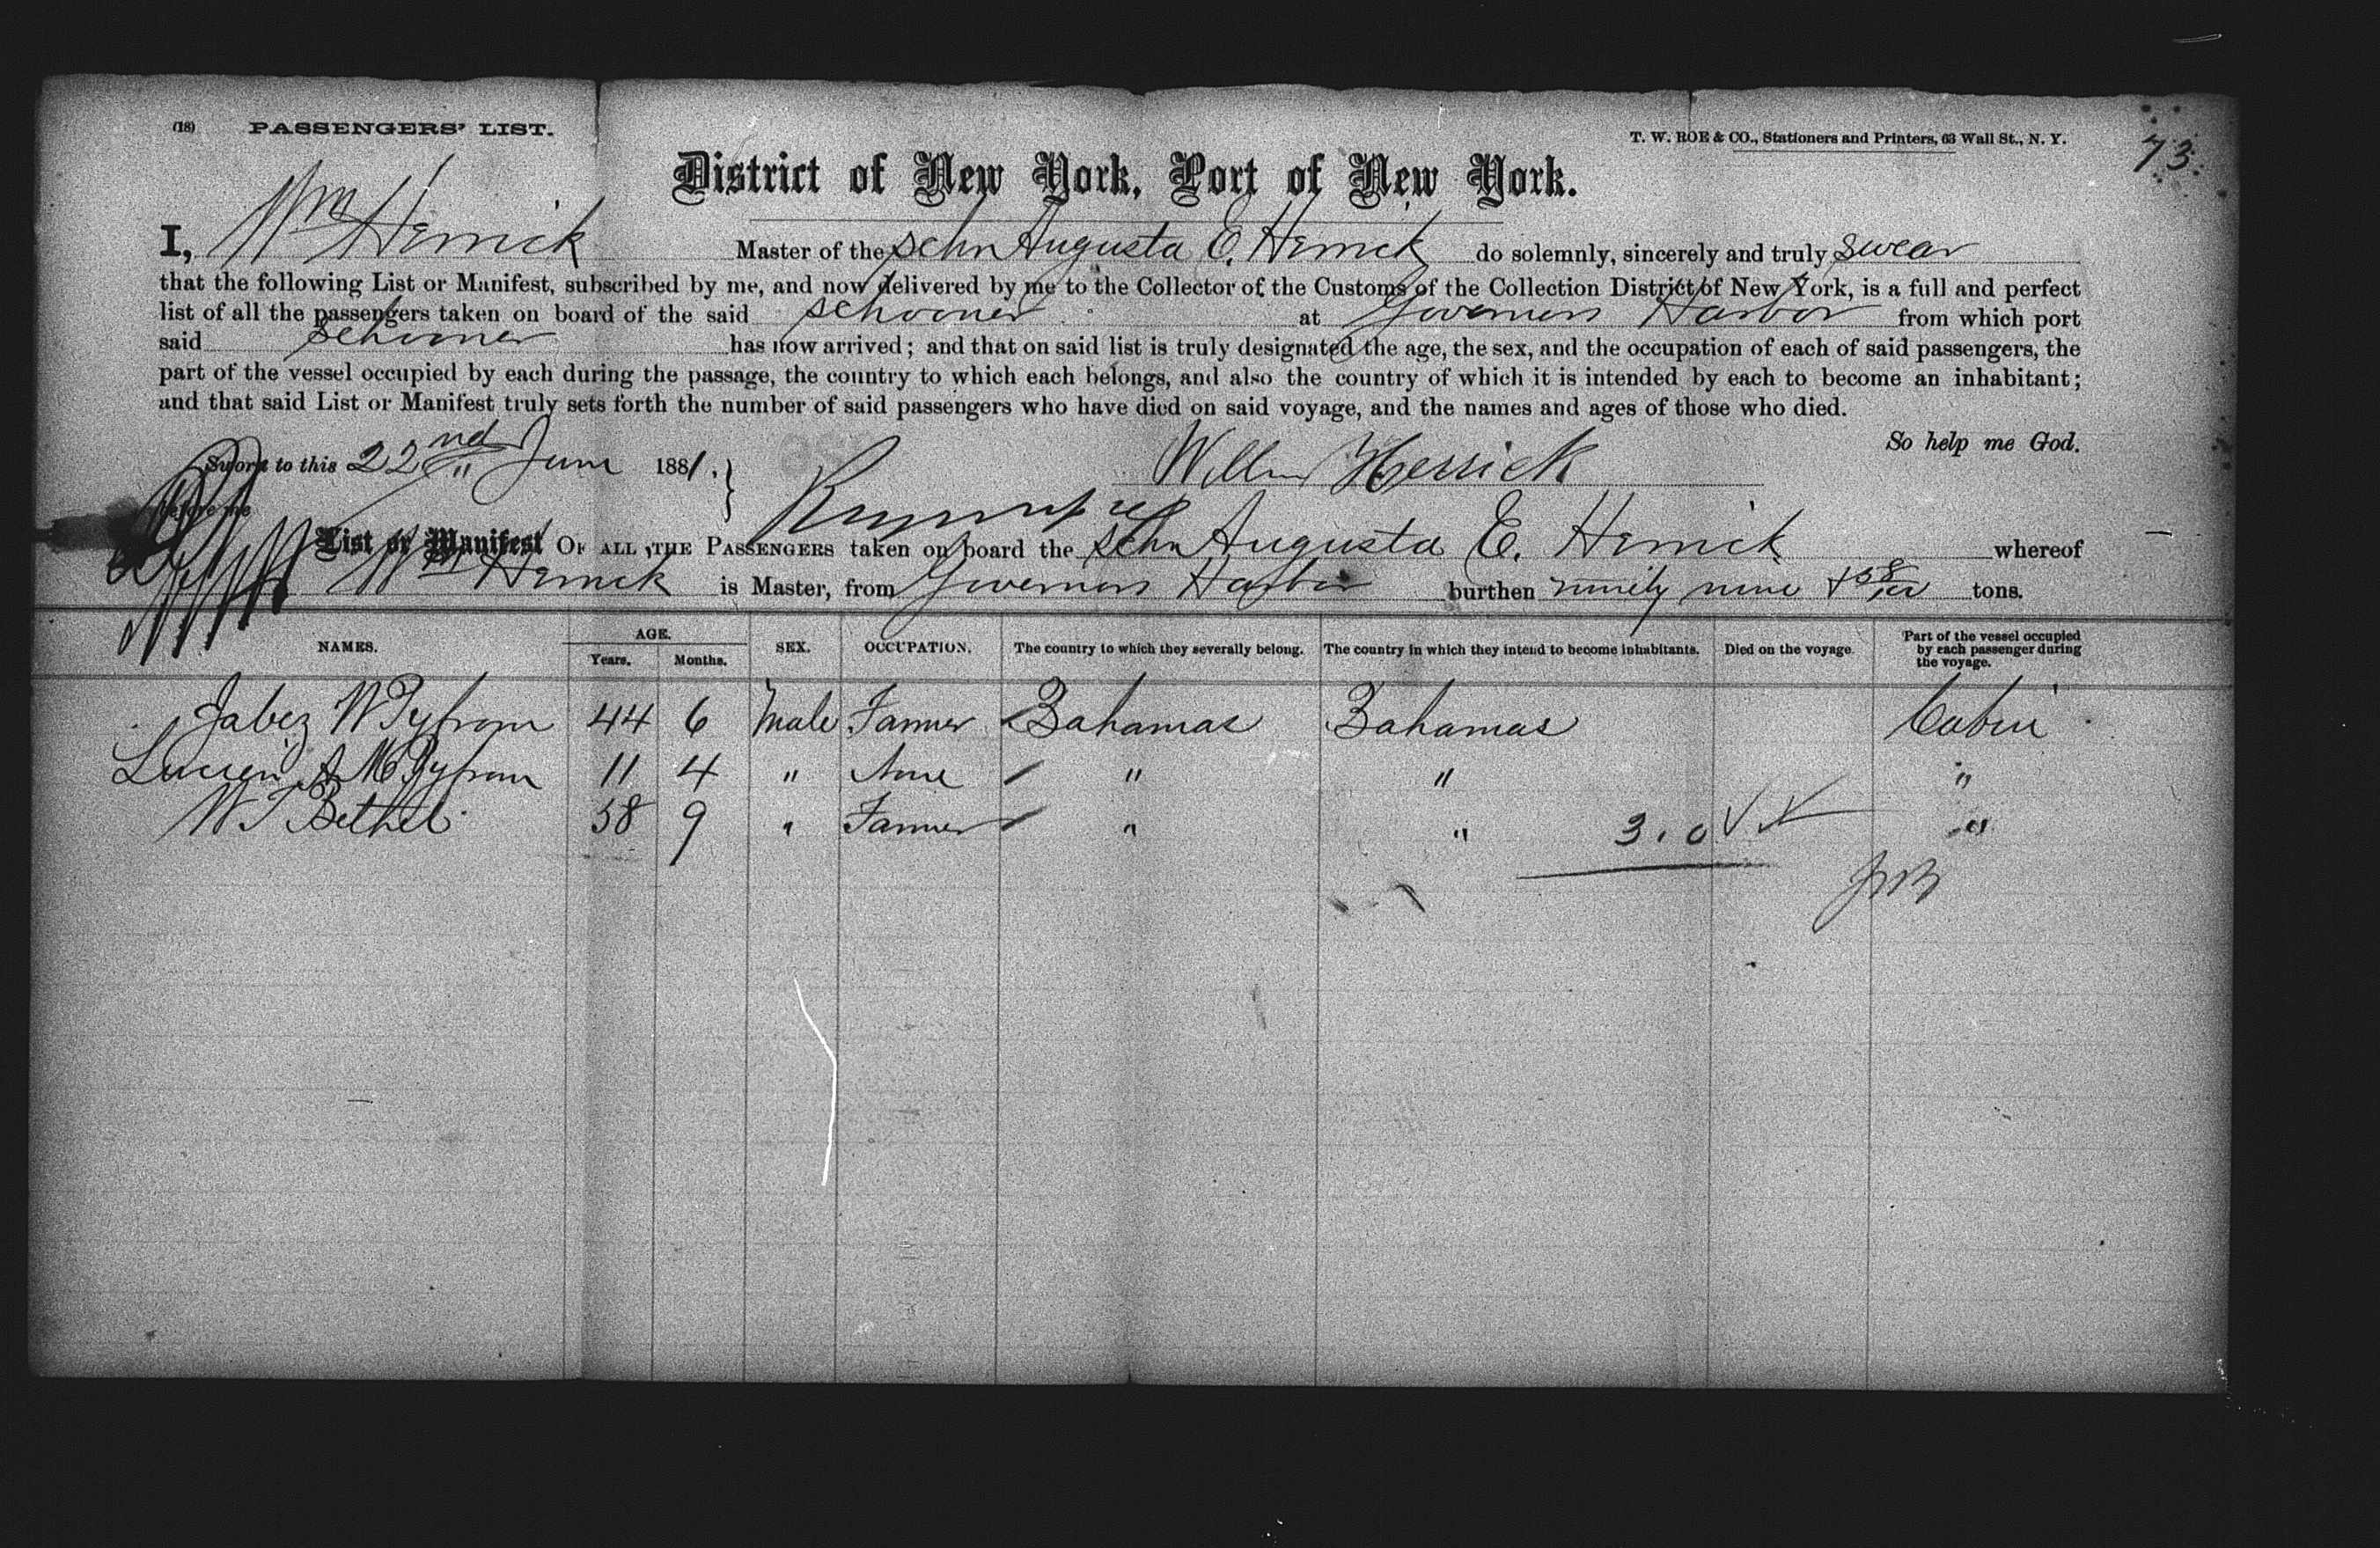 (18) PASSENGERS' LIST.
T. W. ROE & CO., Stationers and Printers, 63 Wall St., N. Y.
73
District of New York, Port of New York.
I, Wm Herrick Master of the Schr Augusta E. Herrick do solemnly, sincerely and truly swear
that the following List or Manifest, subscribed by me, and now delivered by me to the Collector of the Customs of the Collection District of New York, is a full and perfect
list of all the passengers taken on board of the said schooner at Governors Harbor from which port
said schooner has now arrived; and that on said list is truly designated the age, the sex, and the occupation of each of said passengers, the
part of the vessel occupied by each during the passage, the country to which each belongs, and also the country of which it is intended by each to become an inhabitant;
and that said List or Manifest truly sets forth the number of said passengers who have died on said voyage, and the names and ages of those who died.
So help me God.
Sworn to this 22nd June 1881.
William Herrick
before me
List or Manifest OF ALL THE PASSENGERS taken on board the Schr Augusta E. Herrick whereof
Wm Herrick is Master, from Governors Harbor burthen ninety nine & 58/100 tons.
NAMES. AGE. Years. Months. SEX. OCCUPATION. The country to which they severally belong. The country in which they intend to become inhabitants. Died on the voyage. Part of the vessel occupied by each passenger during the voyage.
Jabez W Pyfrom 44 6 Male Farmer Bahamas Bahamas Cabin
Lucien A M Pyfrom 11 4 " None " " "
W T Bethel 58 9 " Farmer " " "
3.0